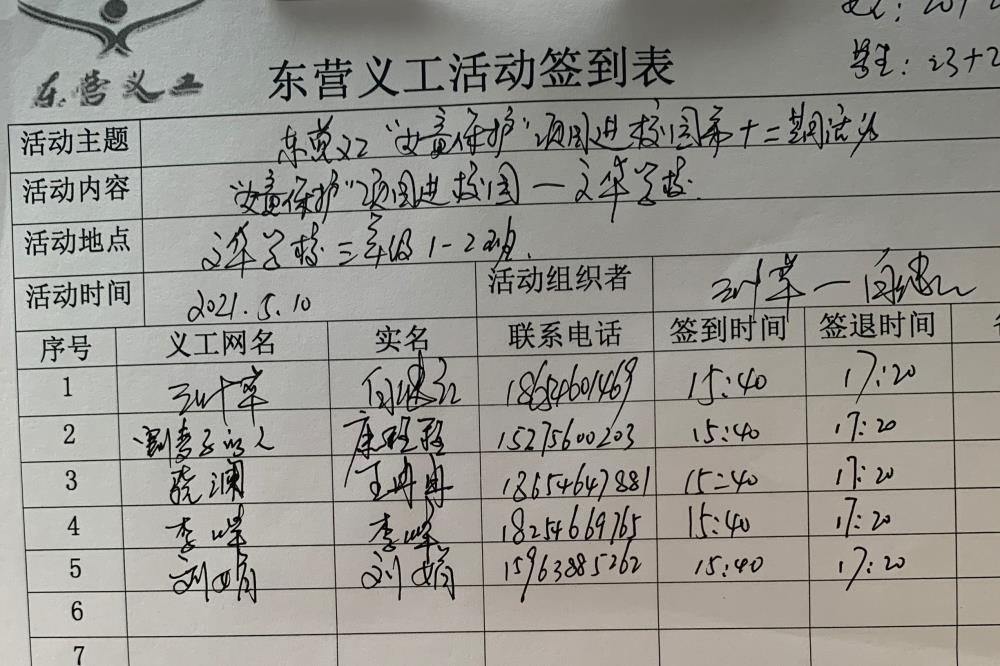 东营义工
东营义工活动签到表
学生：23+2
活动主题 东营义工“女童保护”项目进校园第十二期活动
活动内容 “女童保护”项目进校园一文华学校.
活动地点 文华学校三年级1-2班.
活动时间 2021.5.10 活动组织者 三叶草一
序号 义工网名 实名 联系电话 签到时间 签退时间
1 三叶草 18654601469 15:40 17:20
2 康程程 15275600203 15:40 17:20
3 晓澜 王冉冉 18654647881 15:40 17:20
4 李峰 李峰 18254669765 15:40 17:20
5 刘娟 刘娟 15963885262 15:40 17:20
6
7